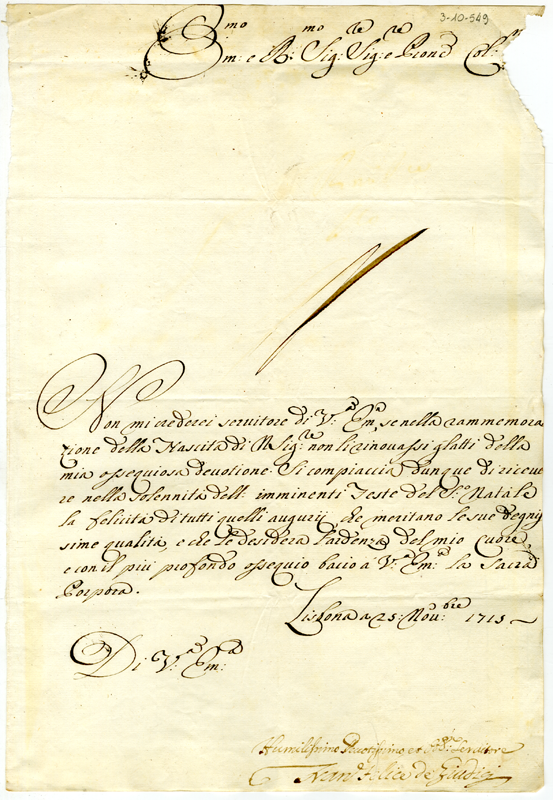 3-10-549
Em:mo e R:mo Sig:re Sig:re e Pron Col:mo
Non mi crederei servitore di V:a Em:a, se nella rammemora
zione della Nascita di N Sig:re non li rinovassi gl'atti della
mia ossequiosa devotione. Si compiaccia dunque di riceve
re nella solennità dell: imminenti Feste del S:o Natale
la felicità di tutti quelli augurij, che meritano le sue degnis
sime qualità, e che le desidera l'ardenza del mio Cuore,
e con il più profondo ossequio bacio a V:a Em:a la Sacra
Porpora.
Lisbona a 25: Nov:bre 1715
Di V:a Em:a
Humilissimo Devotissimo et Servitore
Felice de Giudici